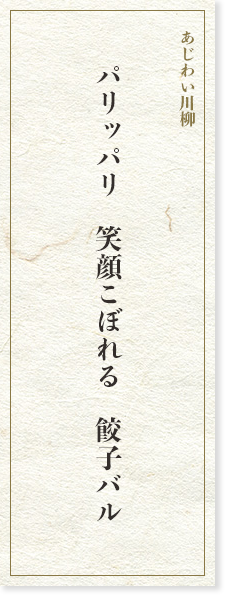 あじわい川柳
パリッパリ　笑顔こぼれる　餃子バル